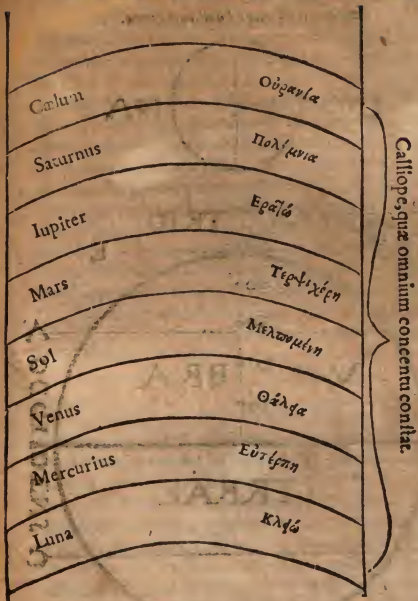 Cælum Οὐρανία
Saturnus Πολύμνια
Iupiter Ερατώ
Mars Τερψιχόρη
Sol Μελπομένη
Venus Θάλεια
Mercurius Εὐτέρπη
Luna Κλειώ
Calliope, quæ omnium concentu constat.